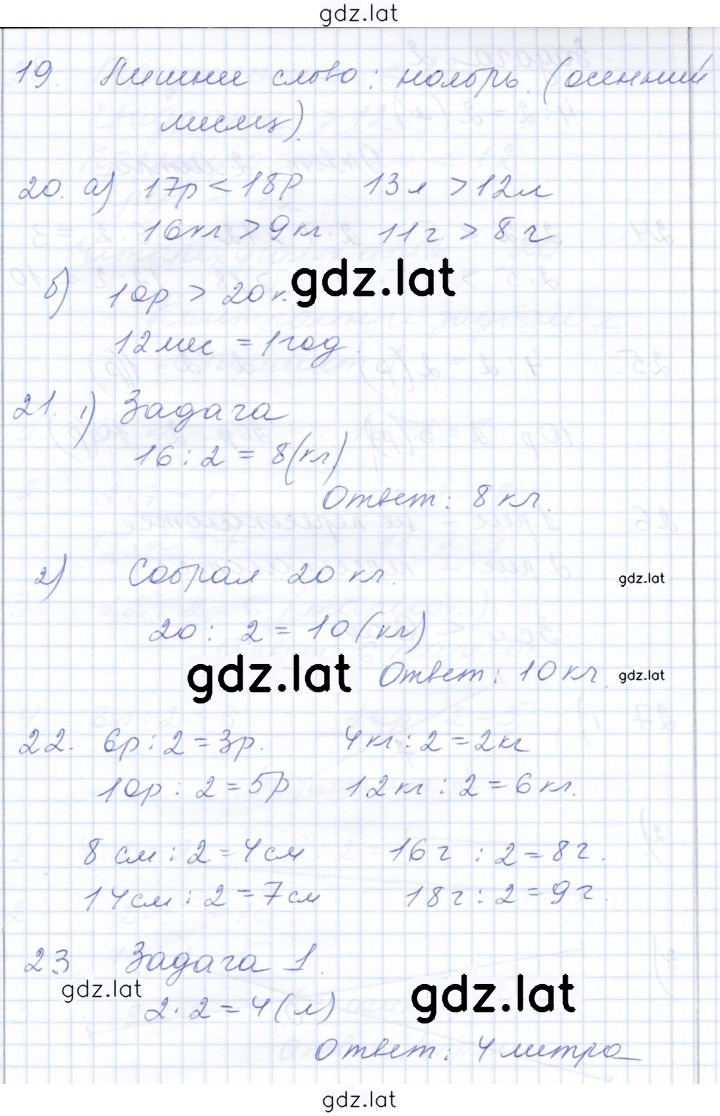 gdz.lat
19. Лишнее слово: ноябрь. (осенний
месяц).
20. а) 17р < 18р 13л > 12л
16кг > 9 кг 11г > 8 г
gdz.lat
б) 10р > 20к.
12мес = 1год.
21. 1) Задача
16 : 2 = 8(кг)
Ответ: 8 кг.
2) Собрал 20 кг.
gdz.lat
20 : 2 = 10 (кг)
gdz.lat
Ответ: 10 кг.
gdz.lat
22. 6р : 2 = 3р. 4кг : 2 = 2кг
10р : 2 = 5р 12кг : 2 = 6 кг.
8 см : 2 = 4см 16г : 2 = 8г.
14см : 2 = 7см 18г : 2 = 9г.
23 Задача 1.
gdz.lat
2 · 2 = 4(л)
gdz.lat
Ответ: 4 литра
gdz.lat